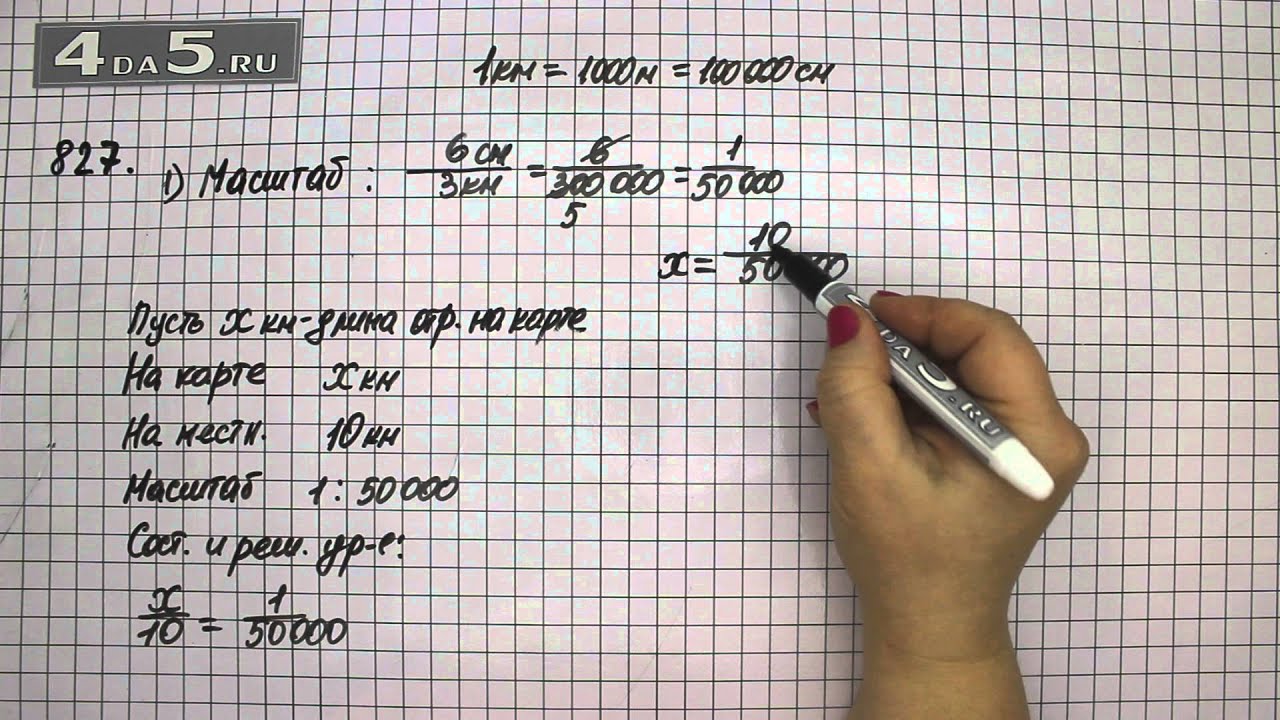 4DA5.RU
1км = 1000м = 100 000 см
827.
1) Масштаб : 6 см / 3 км = 6 / 300 000 = 1 / 50 000
5
x = 10 / 50 000
Пусть x км - длина отр. на карте
На карте x км
На местн. 10 км
Масштаб 1 : 50 000
Сост. и реш. ур-е:
x / 10 = 1 / 50 000
DA5.RU